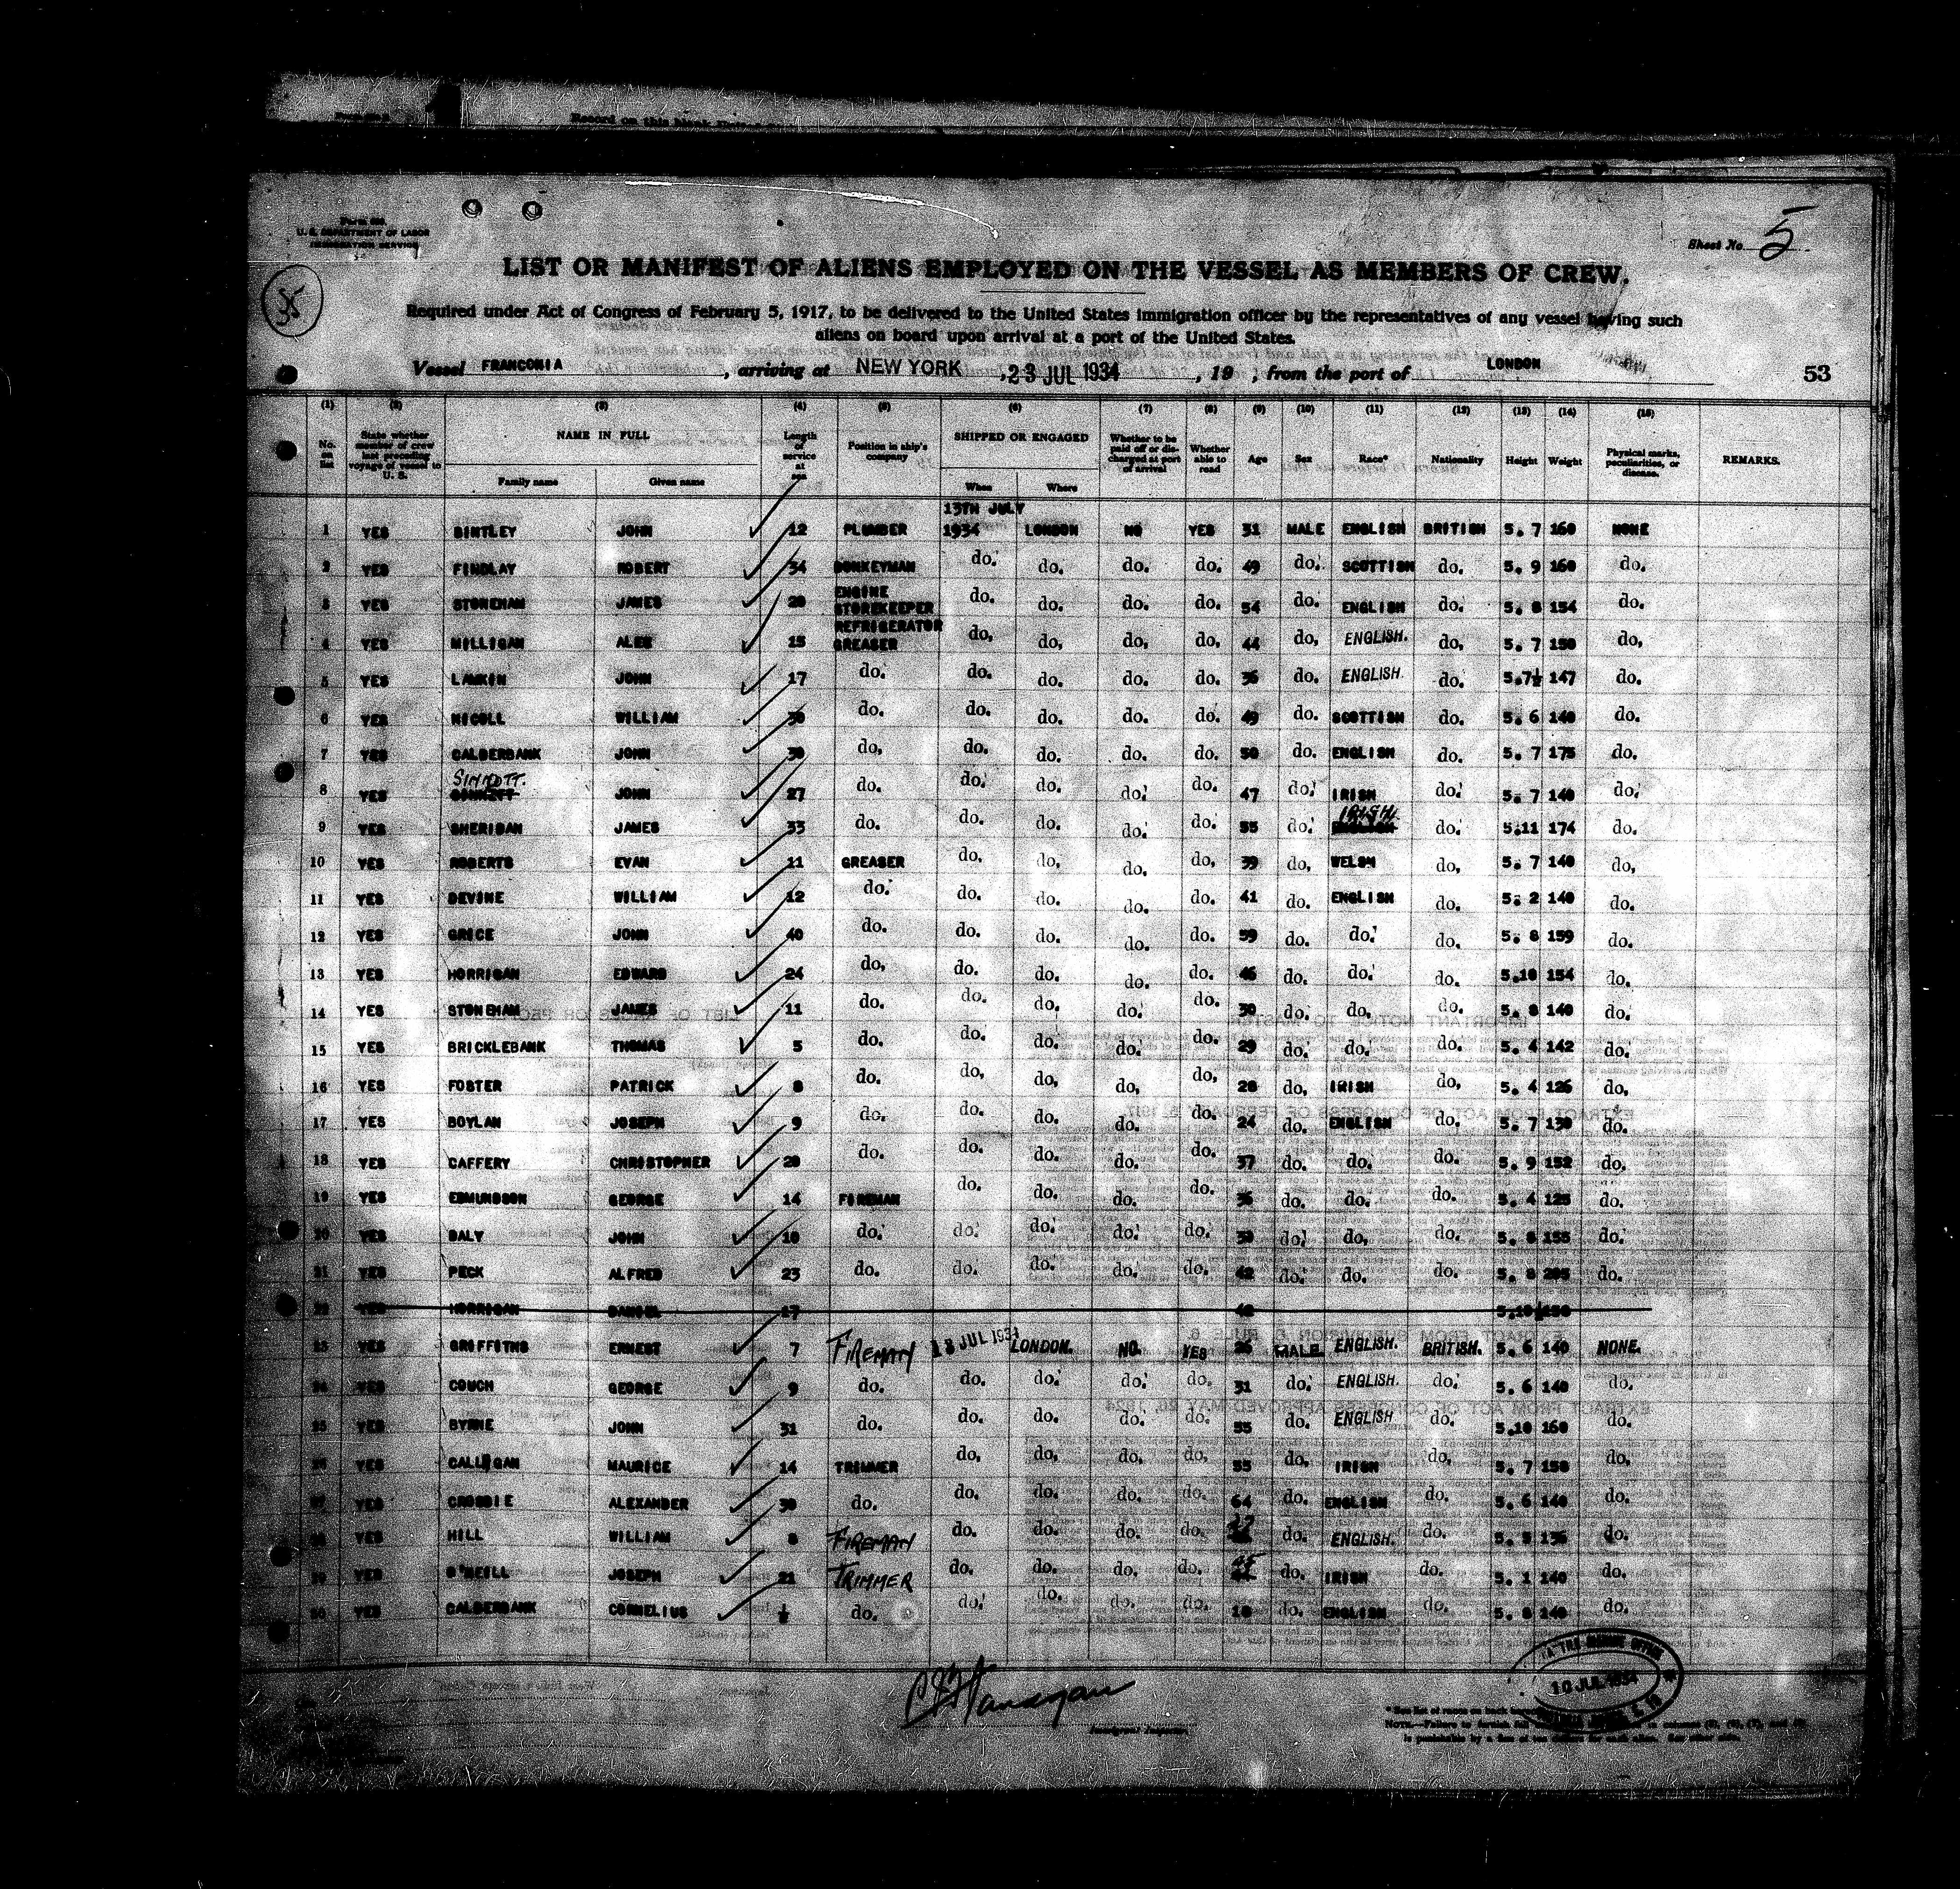 Form 689
U. S. DEPARTMENT OF LABOR
IMMIGRATION SERVICE
Sheet No. 5
35
LIST OR MANIFEST OF ALIENS EMPLOYED ON THE VESSEL AS MEMBERS OF CREW.
Required under Act of Congress of February 5, 1917, to be delivered to the United States immigration officer by the representatives of any vessel having such
aliens on board upon arrival at a port of the United States.
Vessel FRANCONIA, arriving at NEW YORK, 23 JUL 1934, 19 , from the port of LONDON 53
(1) (2) (3) (4) (5) (6) (7) (8) (9) (10) (11) (12) (13) (14) (15)
No. on list State whether member of crew last preceding voyage of vessel to U. S. NAME IN FULL Family name Given name Length of service at sea Position in ship's company SHIPPED OR ENGAGED When Where Whether to be paid off or discharged at port of arrival Whether able to read Age Sex Race* Nationality Height Weight Physical marks, peculiarities, or disease. REMARKS.
1 YES BINTLEY JOHN 12 PLUMBER 13TH JULY 1934 LONDON NO YES 31 MALE ENGLISH BRITISH 5. 7 160 NONE
2 YES FINDLAY ROBERT 34 DONKEYMAN do. do. do. do. 49 do. SCOTTISH do. 5. 9 160 do.
3 YES STONEHAM JAMES 20 ENGINE STOREKEEPER do. do. do. do. 54 do. ENGLISH do. 5. 8 154 do.
4 YES MILLIGAN ALEX 15 REFRIGERATOR GREASER do. do. do. do. 44 do. ENGLISH. do. 5. 7 150 do.
5 YES LAWKIN JOHN 17 do. do. do. do. do. 36 do. ENGLISH. do. 5.7½ 147 do.
6 YES NICOLL WILLIAM 30 do. do. do. do. do. 49 do. SCOTTISH do. 5. 6 140 do.
7 YES CALDERBANK JOHN 30 do. do. do. do. do. 50 do. ENGLISH do. 5. 7 175 do.
8 YES SINNOTT. JOHN 27 do. do. do. do. do. 47 do. IRISH do. 5. 7 140 do.
9 YES SHERIDAN JAMES 33 do. do. do. do. do. 55 do. IRISH do. 5.11 174 do.
10 YES ROBERTS EVAN 11 GREASER do. do. do. do. 39 do. WELSH do. 5. 7 140 do.
11 YES DEVINE WILLIAM 12 do. do. do. do. do. 41 do. ENGLISH do. 5. 2 140 do.
12 YES GRICE JOHN 40 do. do. do. do. do. 59 do. do. do. 5. 8 159 do.
13 YES HORRIGAN EDWARD 24 do. do. do. do. do. 46 do. do. do. 5.10 154 do.
14 YES STONEHAM JAMES 11 do. do. do. do. do. 30 do. do. do. 5. 8 140 do.
15 YES BRICKLEBANK THOMAS 5 do. do. do. do. do. 29 do. do. do. 5. 4 142 do.
16 YES FOSTER PATRICK 8 do. do. do. do. do. 28 do. IRISH do. 5. 4 126 do.
17 YES BOYLAN JOSEPH 9 do. do. do. do. do. 24 do. ENGLISH do. 5. 7 130 do.
18 YES CAFFERY CHRISTOPHER 20 do. do. do. do. do. 37 do. do. do. 5. 9 152 do.
19 YES EDMUNDSON GEORGE 14 FIREMAN do. do. do. do. 36 do. do. do. 5. 4 125 do.
20 YES DALY JOHN 10 do. do. do. do. do. 30 do. do. do. 5. 8 155 do.
21 YES PECK ALFRED 23 do. do. do. do. do. 42 do. do. do. 5. 8 205 do.
22 YES HORRIGAN DANIEL 17
23 YES GRIFFITHS ERNEST 7 FIREMAN 13 JUL 1934 LONDON. NO. YES 26 MALE ENGLISH. BRITISH. 5. 6 140 NONE.
24 YES COUCH GEORGE 9 do. do. do. do. do. 31 do. ENGLISH. do. 5. 6 140 do.
25 YES BYRNE JOHN 31 do. do. do. do. do. 55 do. ENGLISH do. 5.10 160 do.
26 YES CALLIGAN MAURICE 14 TRIMMER do. do. do. do. 55 do. IRISH do. 5. 7 150 do.
27 YES CROSBIE ALEXANDER 30 do. do. do. do. do. 64 do. ENGLISH do. 5. 6 140 do.
28 YES HILL WILLIAM 8 FIREMAN do. do. do. do. do. ENGLISH. do. 5. 5 136 do.
29 YES O'NEILL JOSEPH 21 TRIMMER do. do. do. do. 45 do. IRISH do. 5. 1 140 do.
30 YES CALDERBANK CORNELIUS ½ do. do. do. do. do. 18 do. ENGLISH do. 5. 8 140 do.
Immigrant Inspector.
10 JUL 1934
* See list of races on back